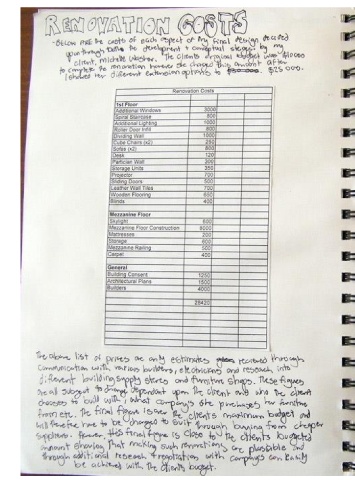 RENOVATION COSTS
- Below are the costs of each aspect of my final design decided
upon through the development + conceptual stages by my
client, Michelle Weston. The clients original budget was $10000
to complete the renovation however she changed this amount after
I showed her different extension options to $25 000.
Renovation Costs
1st Floor
Additional Windows 3000
Spiral Staircase 800
Additional Lighting 1000
Roller Door Infill 800
Dividing Wall 1000
Cube Chairs (x2) 250
Sofas (x2) 800
Desk 120
Partician Wall 300
Storage Units 350
Projector 700
Sliding Doors 500
Leather Wall Tiles 700
Wooden Flooring 800
Blinds 400
Mezzanine Floor
Skylight 600
Mezzanine Floor Construction 9000
Mattresses 200
Storage 600
Mezzanine Railing 500
Carpet 400
General
Building Consent 1250
Architectural Plans 1500
Builders 4000
28420
The above list of prices are only estimates recieved through
communication with various builders, electricians and research into
different building supply stores and furniture shops. These figures
are all subject to change dependant upon the client and who the client
chooses to build with, what companys she purchases her furniture
from etc. The final figure is over the clients maximum budget and
will therefore have to be changed to suit through buying from cheaper
suppliers. However, this final figure is close to the clients budgeted
amount showing that making such renovations are plausible and
through additional research + negotiation with companys can easily
be achieved with the clients budget.